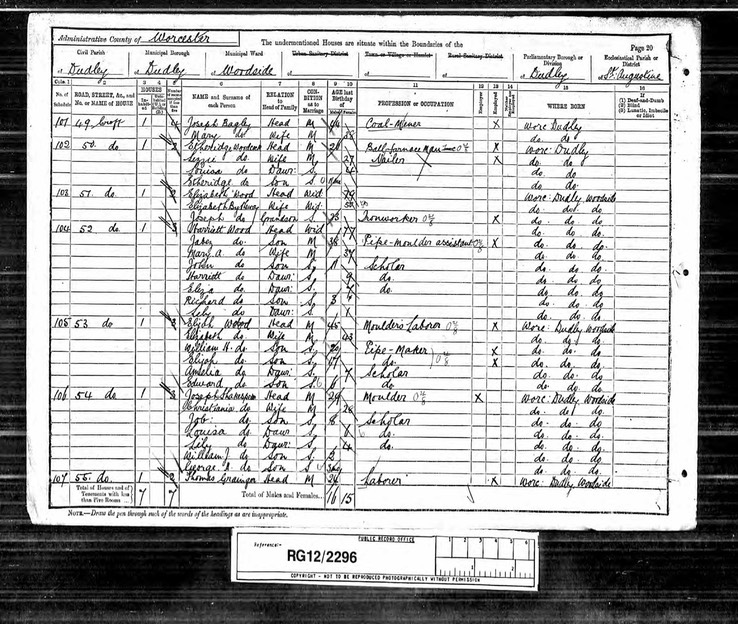 Administrative County of Worcester The undermentioned Houses are situate within the Boundaries of the Page 20
Civil Parish Municipal Borough Municipal Ward Urban Sanitary District Town or Village or Hamlet Rural Sanitary District Parliamentary Borough or Division Ecclesiastical Parish or District
of Dudley of Dudley of Woodside of of of of Dudley of St Augustine
No. of Schedule ROAD, STREET, &c., and No. or NAME of HOUSE HOUSES NAME and Surname of each Person RELATION to Head of Family CONDITION as to Marriage AGE last Birthday of PROFESSION or OCCUPATION Employer Employed WHERE BORN If (1) Deaf-and-Dumb (2) Blind (3) Lunatic, Imbecile or Idiot
101 49 Croft 1 4 Joseph Bagley Head M 44 Coal-Miner X Worc Dudley
Mary do Wife M 38 do. do
102 50. do 1 Head M 28 X Worc: Dudley
Lizzie do. Wife M 27 Nailer do. do.
Louisa do Dawr: S 4 do. do
Etheridge do Son S do. do
103 51 do 1 Elizabeth Wood Head Wid Worc: Dudley Woodside
Elizabeth Wife do. do. do
Joseph do Grandson S 23 Ironworker X do. do. do
104 52 do 1 Harriett Wood Head Wid 77 do. do. do.
Jabez do. Son M 38 Pipe-Moulder assistant X do. do. do.
Mary A. do Wife M 37 do. do. do
John do Son S 11 Scholar do. do. do
Harriett do Dawr: S 9 do. do. do. do
Eliza do Dawr: S do. do. do. do
Richard do Son S 3 do. do. do
do Dawr: S do. do. do
105 53 do 1 Elijah Wood Head M 45 Moulder's Laborer X Worc: Dudley Woodside
Elizabeth do Wife M 43 do. do. do
William H. do Son S Pipe-Maker X do. do. do
Elijah do Son S 17 do. X do. do. do
Amelia do Dawr: S Scholar do. do. do
Edward do Son S do do. do. do
106 54 do 1 Joseph Shakespear Head M 29 Moulder X Worc: Dudley Woodside
Christiania do Wife M 28 do. do do
Job: do Son S 8 Scholar do. do. do
Louisa do Dawr S do. do. do. do
Lily do Dawr: S 4 do. do. do. do
William J do Son S 2 do. do. do
George A. do Son S do. do. do
107 55. do 1 Thomas Grainger Head M 24 Laborer X Worc: Dudley Woodside
Total of Houses and of Tenements with less than Five Rooms 7 7 Total of Males and Females 16 15
NOTE.—Draw the pen through such of the words of the headings as are inappropriate.
PUBLIC RECORD OFFICE
Reference:- RG12/2296
COPYRIGHT - NOT TO BE REPRODUCED PHOTOGRAPHICALLY WITHOUT PERMISSION
1 2 3 4 5 6